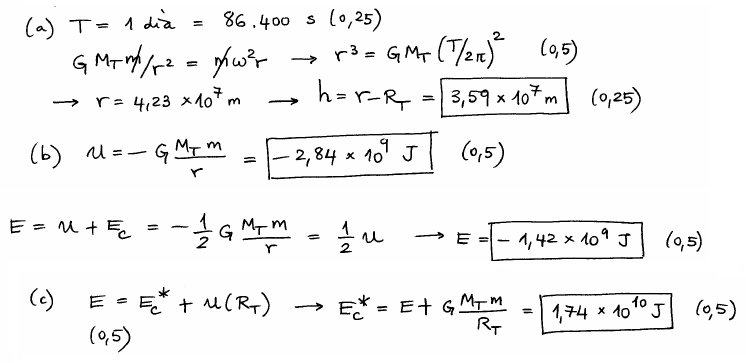 (a) T = 1 día = 86.400 s (0,25)
G M_T m/r² = m ω² r → r³ = G M_T (T/2π)² (0,5)
→ r = 4,23 × 10⁷ m → h = r − R_T = 3,59 × 10⁷ m (0,25)
(b) u = − G M_T m / r = − 2,84 × 10⁹ J (0,5)
E = u + E_c = − 1/2 G M_T m / r = 1/2 u → E = − 1,42 × 10⁹ J (0,5)
(c) E = E_c* + u(R_T) → E_c* = E + G M_T m / R_T = 1,74 × 10¹⁰ J (0,5)
(0,5)